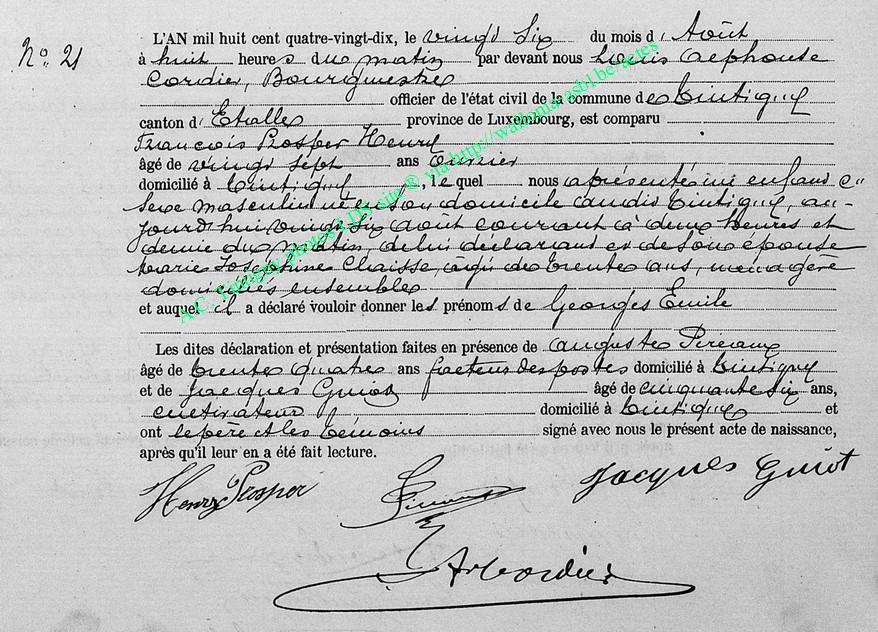 N° 21
L'AN mil huit cent quatre-vingt-dix, le vingt Six du mois d' Août
à huit heures du matin par devant nous Louis Alphonse
Cordier, Bourgmestre
officier de l'état civil de la commune de Tintigny
canton d' Etalle province de Luxembourg, est comparu
François Prosper Henry
âgé de vingt sept ans ouvrier
domicilié à Tintigny, lequel nous a présenté un enfant du
Sexe masculin né en son domicile audit Tintigny, au-
jourd'hui vingt Six août courant à deux heures et
demie du matin, de lui déclarant et de Son épouse
Marie Joséphine Chaisse, âgée de trente ans, ménagère
domiciliés ensemble
et auquel il a déclaré vouloir donner les prénoms de Georges Emile
Les dites déclaration et présentation faites en présence de Auguste
âgé de trente quatre ans facteur des postes domicilié à Tintigny
et de Jacques Guiot âgé de cinquante six ans,
cultivateur domicilié à Tintigny et
ont le père et les témoins signé avec nous le présent acte de naissance,
après qu'il leur en a été fait lecture.
Henry Prosper Jacques Guiot
A. Cordier
A.C. Tintigny photos LDS site ® via http://wallonia-asbl.be/actes